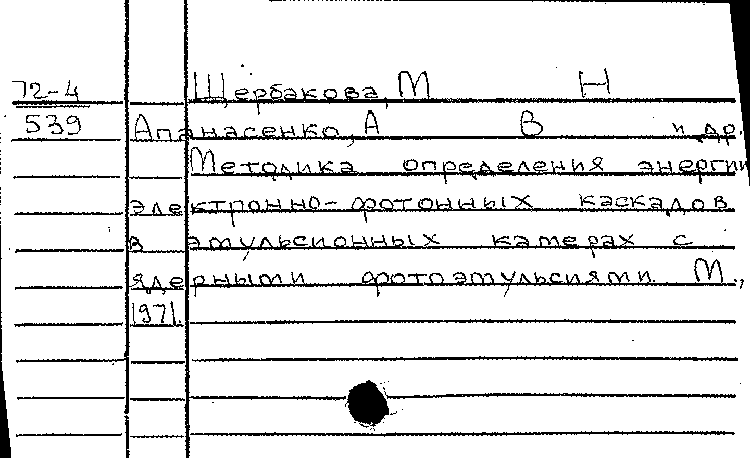 72-4 Щербакова, М Н
539 Апанасенко, А В и др.
Методика определения энергии
электронно-фотонных каскадов
в эмульсионных камерах с
ядерными фотоэмульсиями. М.,
1971.